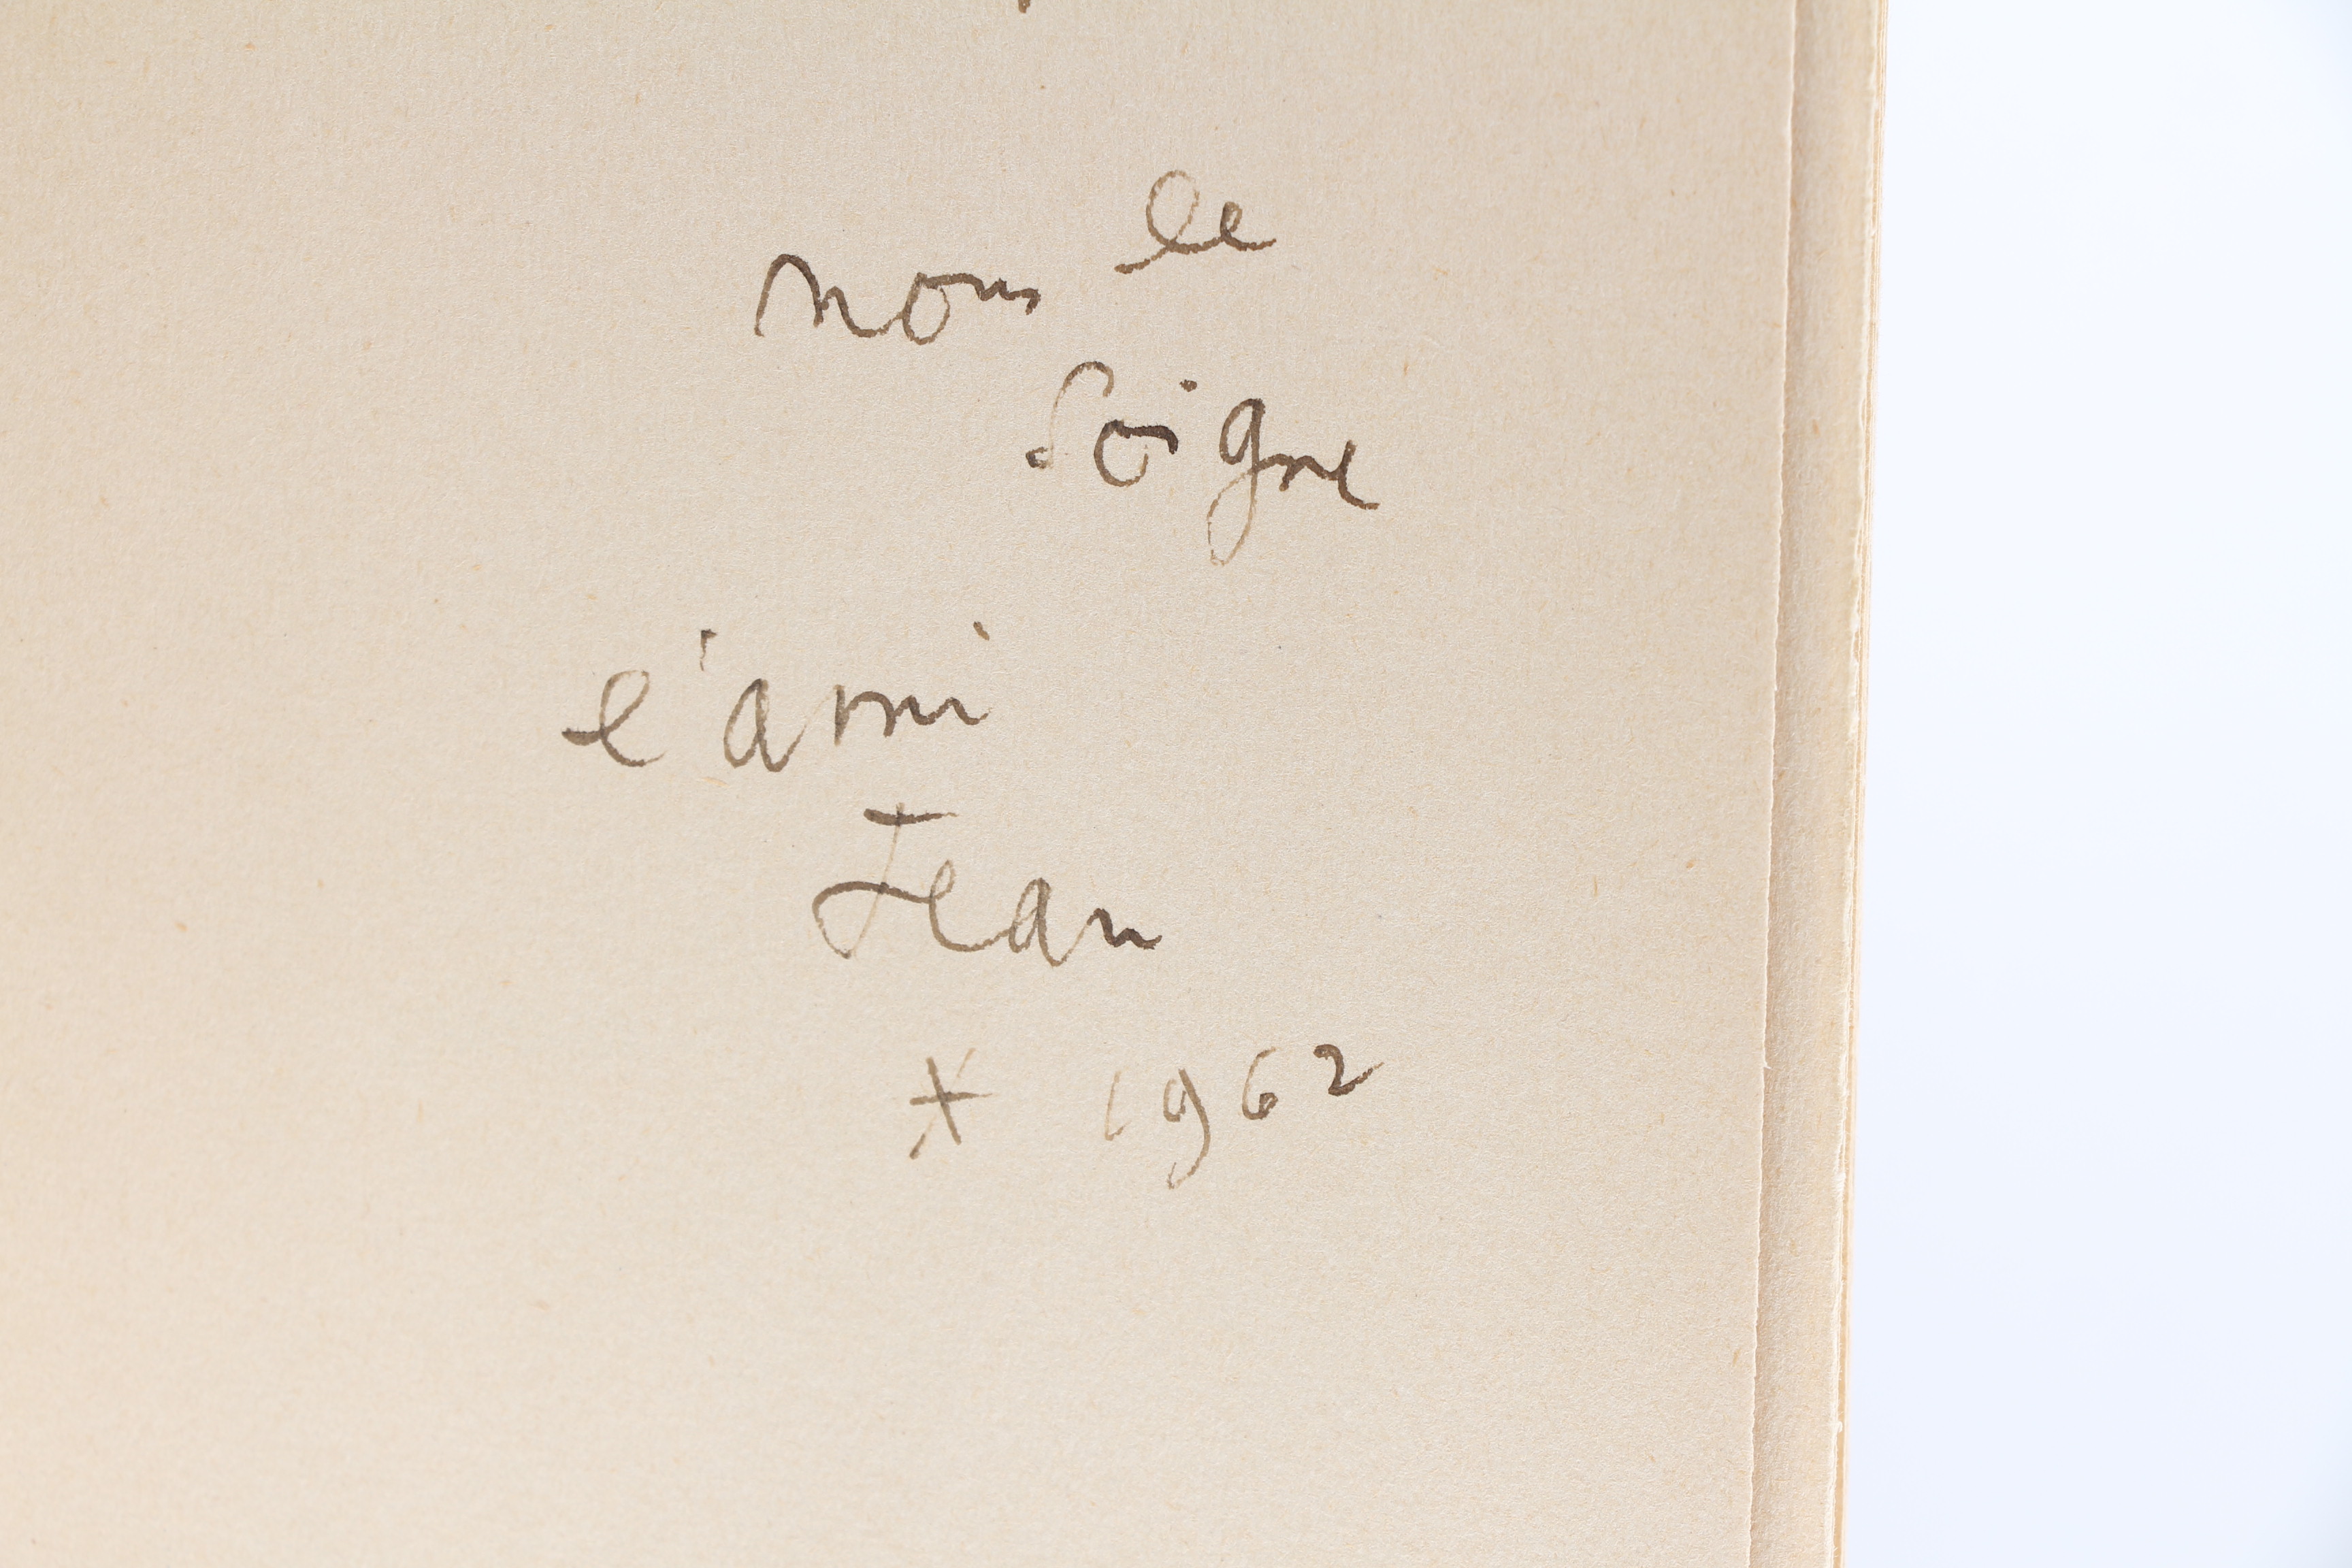 nous le
soigne
l'ami
Jean
* 1962